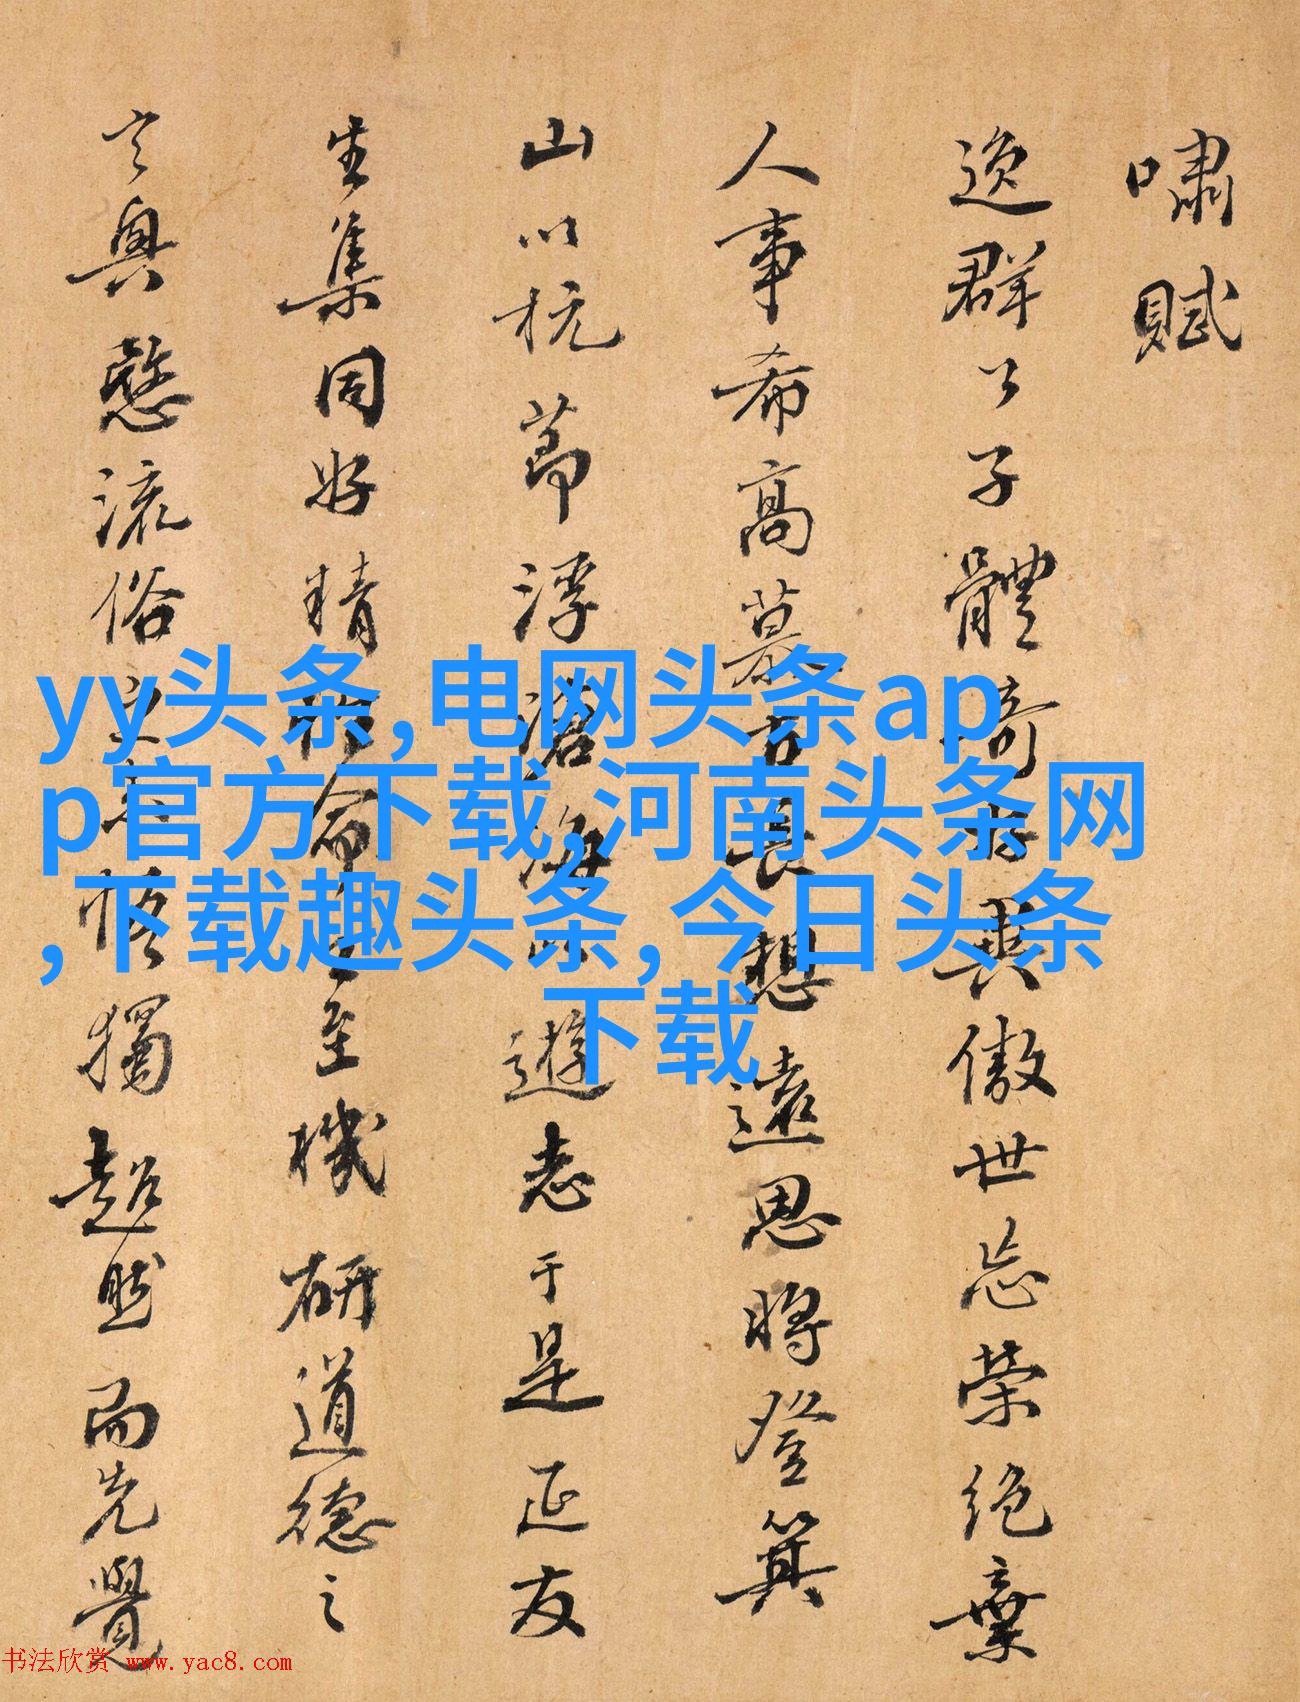 嘯賦
逸群公子體奇好異傲世忘榮絕棄
人事希高慕古長想遠思將登箕
山以抗節浮滄海以遊志于是延友
生集同好精性命之至機研道德之
玄奥愍流俗之未悟獨超然而先覺
yy头条,电网头条ap
p官方下载,河南头条网
,下载趣头条,今日头条
下载
书法欣赏 www.yac8.com